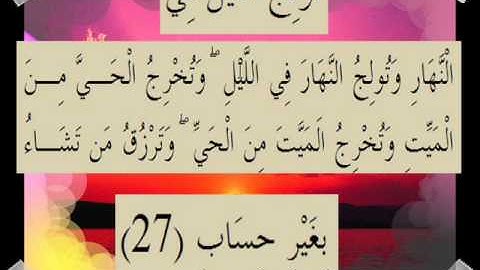 فِي
الْنَّهَارِ وَتُولِجُ النَّهَارَ فِي اللَّيْلِ ۖ وَتُخْرِجُ الْحَـــيَّ مِـــنَ
الْمَيِّتِ وَتُخْرِجُ الَمَيَّتَ مِنَ الْحَيِّ ۖ وَتَرْزُقُ مَن تَشَـــاءُ
بِغَيْرِ حِسَاب (27)